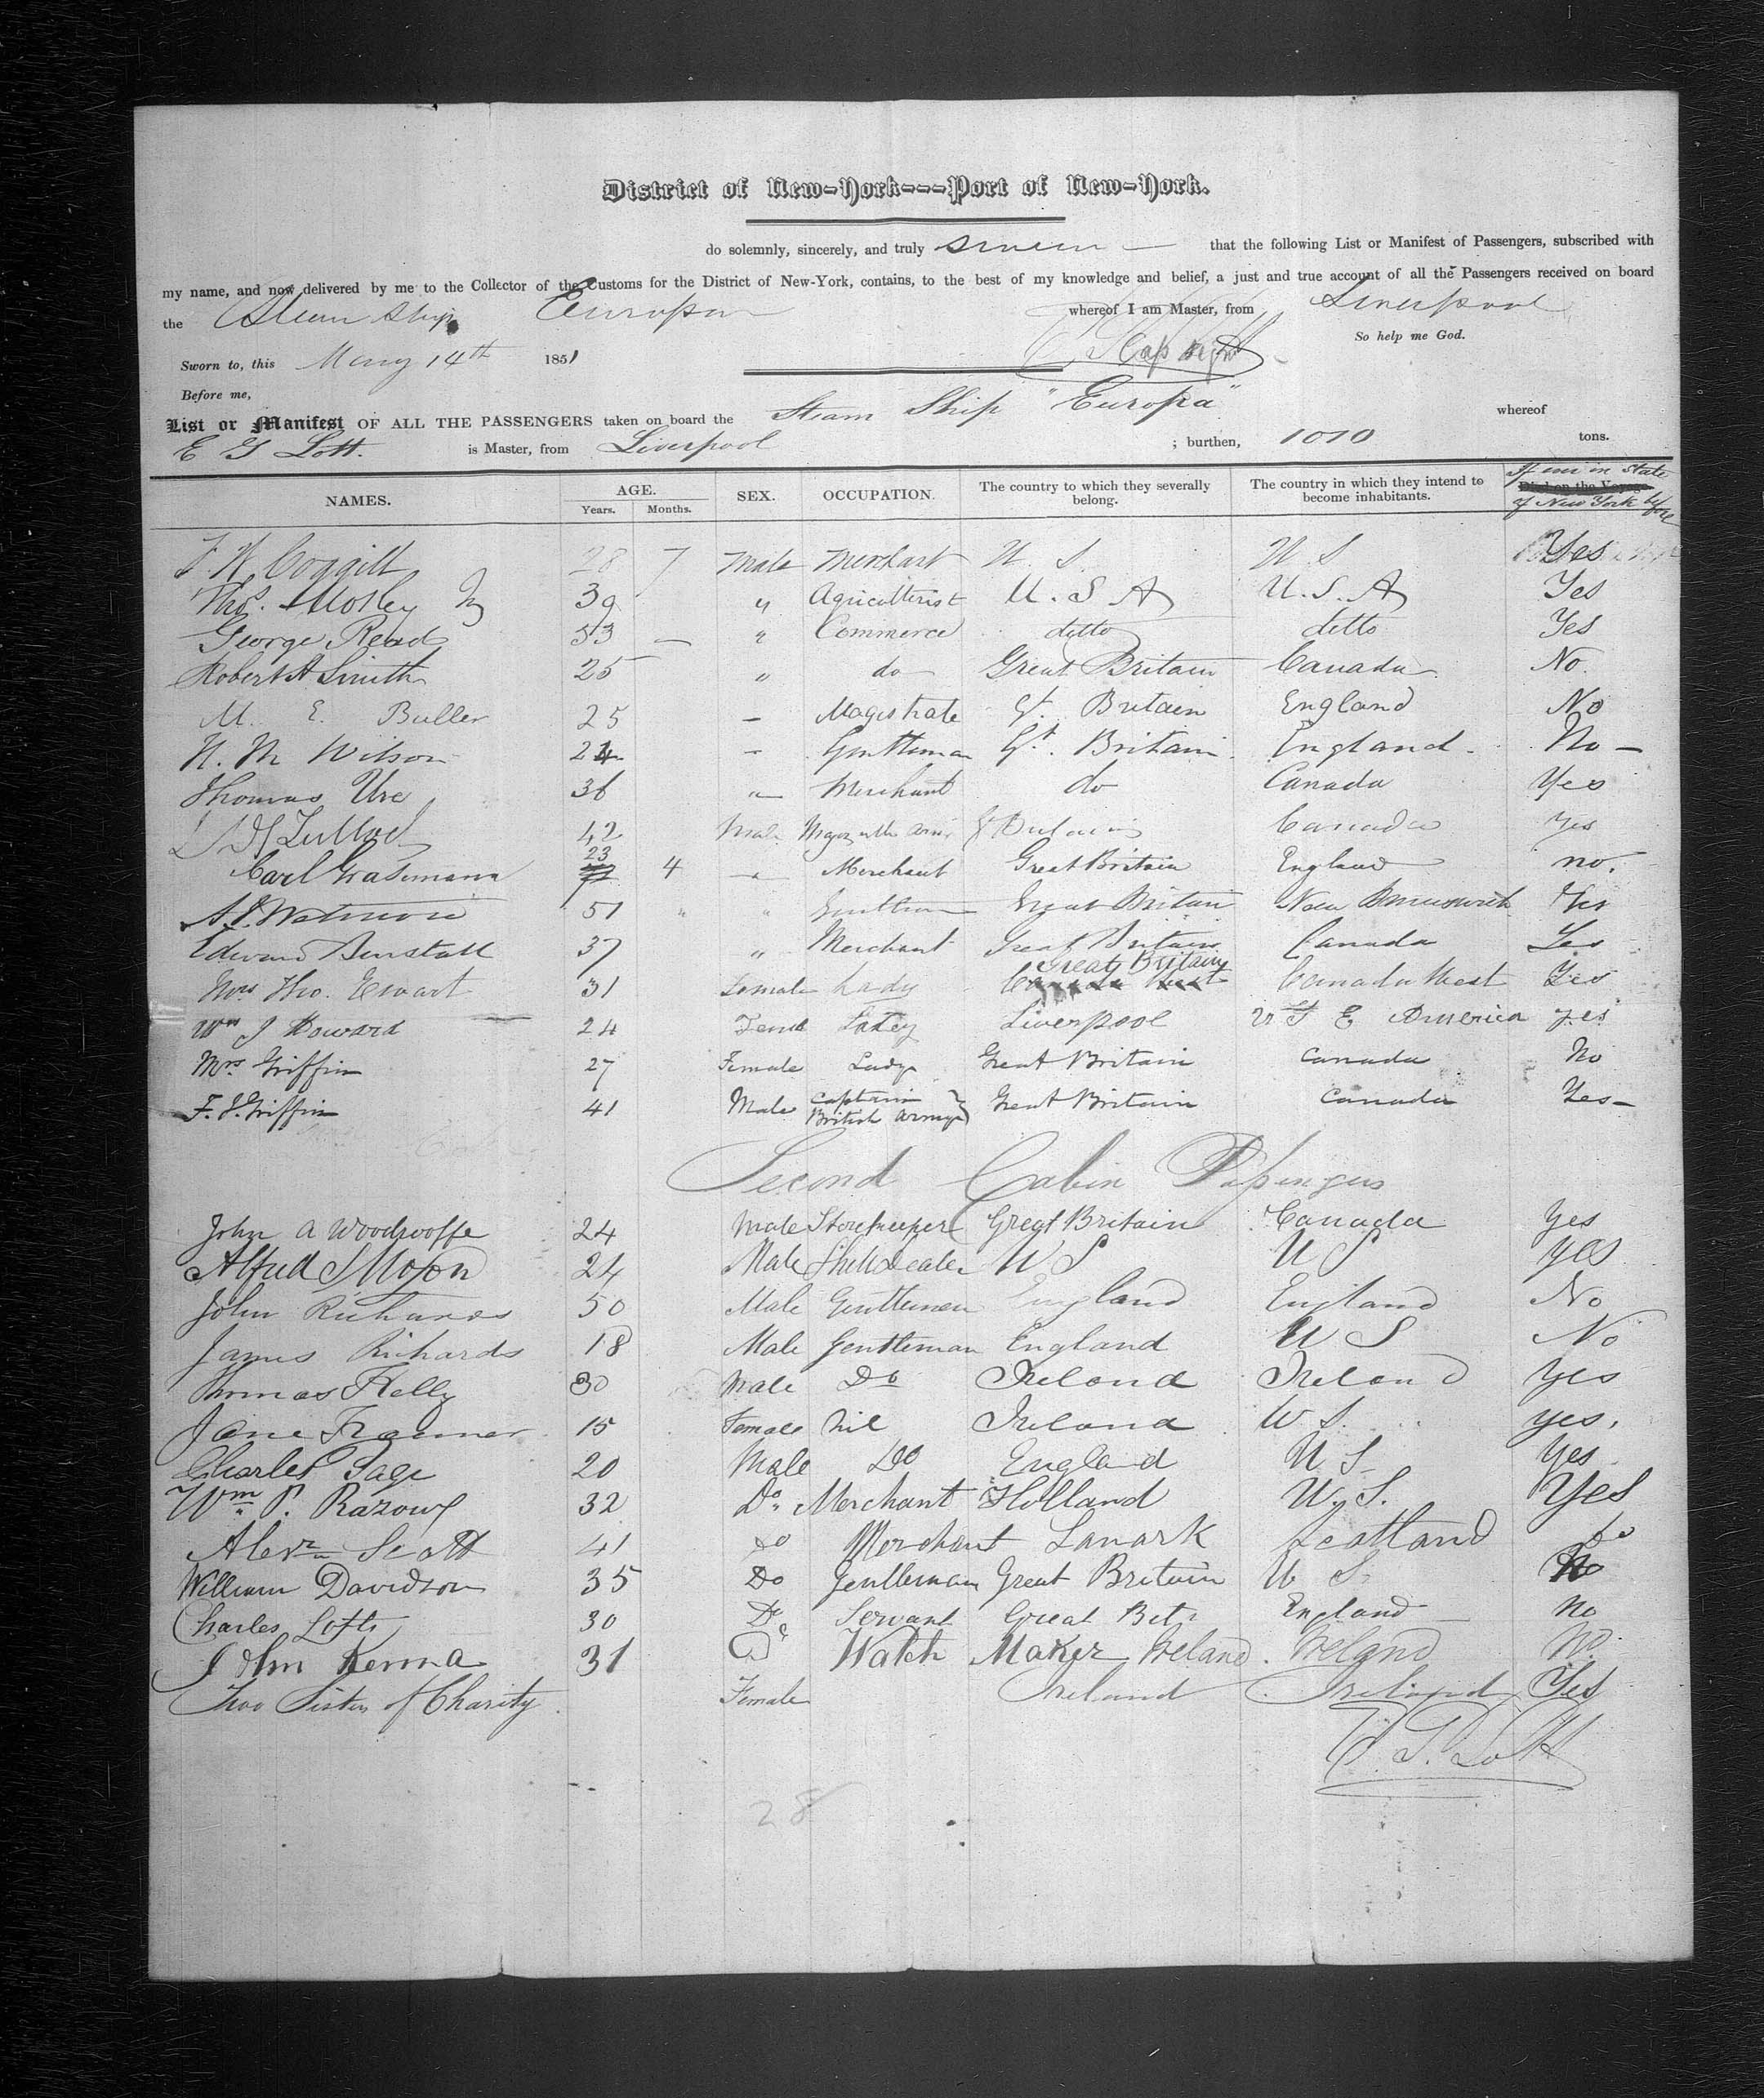 District of New-York---Port of New-York.
do solemnly, sincerely, and truly swear — that the following List or Manifest of Passengers, subscribed with
my name, and now delivered by me to the Collector of the Customs for the District of New-York, contains, to the best of my knowledge and belief, a just and true account of all the Passengers received on board
the Steam Ship Europa whereof I am Master, from Liverpool
So help me God.
Sworn to, this May 14th 1851
Before me,
List or Manifest OF ALL THE PASSENGERS taken on board the Steam Ship "Europa" whereof
E G Lott. is Master, from Liverpool ; burthen, 1010 tons.
NAMES. AGE. Years. Months. SEX. OCCUPATION. The country to which they severally belong. The country in which they intend to become inhabitants. Died on the Voyage If ever in State of New York before
F W Coggill 28 7 Male Merchant U. S. U S Yes
Thos. Mosley 39 " Agriculturist U. S A U. S. A Yes
George Read 53 — " Commerce ditto ditto Yes
Robert A Smith 25 " do Great Britain Canada No.
M. E. Buller 25 – Magistrate Gt. Britain England No
N. M Wilson 24 – Gentleman Gt. Britain England. No –
Thomas Ure 36 " Merchant do Canada Yes
42 Male Canada Yes
Carl 23 4 " Merchant Great Britain England no.
51 " " Gentleman Great Britain New Brunswick Yes
Edward Burstall 37 " Merchant Great Britain Canada Yes
Mrs Tho. Ewart 31 Female Lady Canada West Great Britain Canada West Yes
Wm J Howard 24 Liverpool America yes
Mrs. Griffin 27 Female Lady Great Britain Canada No
F. J. Griffin 41 Male Captain British Army Great Britain Canada Yes –
Second Cabin Passengers
John A Woodrooffe 24 Male Storekeeper Great Britain Canada Yes
Alfred S Moson 24 Male Shell Dealer U S U S yes
John Richards 50 Male Gentleman England England No
James Richards 18 Male Gentleman England U S No
Thomas Kelly 30 Male Do Ireland Ireland Yes
Jane 15 Female Nil Ireland U S. yes.
Charles Sage 20 Male Do England U S Yes
Wm. P. Razoux 32 Do. Merchant Holland U. S. Yes
Alexr Scott 41 Do Merchant Lanark Scotland
William Davidson 35 Do Gentleman Great Britain U S. No
Charles Lofts 30 Do Servant Great Bt England No
John Kenna 31 Do Watch Maker Ireland. Ireland No.
Two Sisters of Charity Female Ireland Ireland Yes
E. G. Lott
28